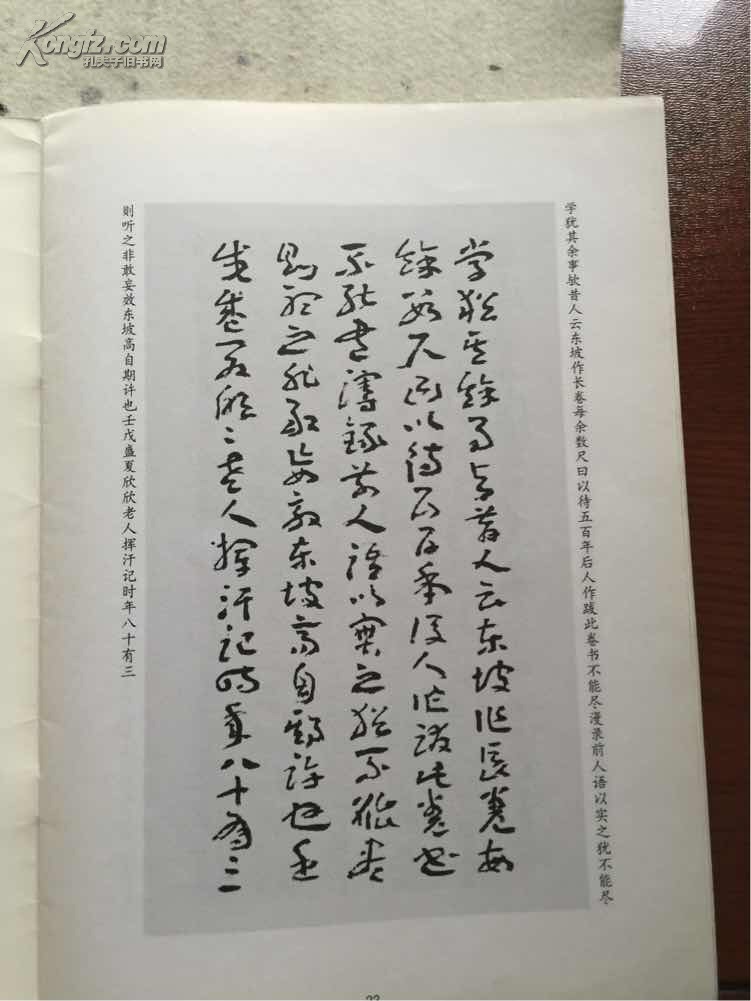 Kongfz.com
孔夫子旧书网
学犹其余事欤昔人云东坡作长卷每余数尺曰以待五百年后人作跋此卷书不能尽漫录前人语以实之犹不能尽
學猶其餘事欤昔人云東坡作長卷每
餘數尺曰以待五百年後人作跋此卷書
不能盡漫錄前人語以實之猶不能盡
則聽之非敢妄效東坡高自期許也壬
戌盛夏欣欣老人揮汗記時年八十有三
则听之非敢妄效东坡高自期许也壬戌盛夏欣欣老人挥汗记时年八十有三